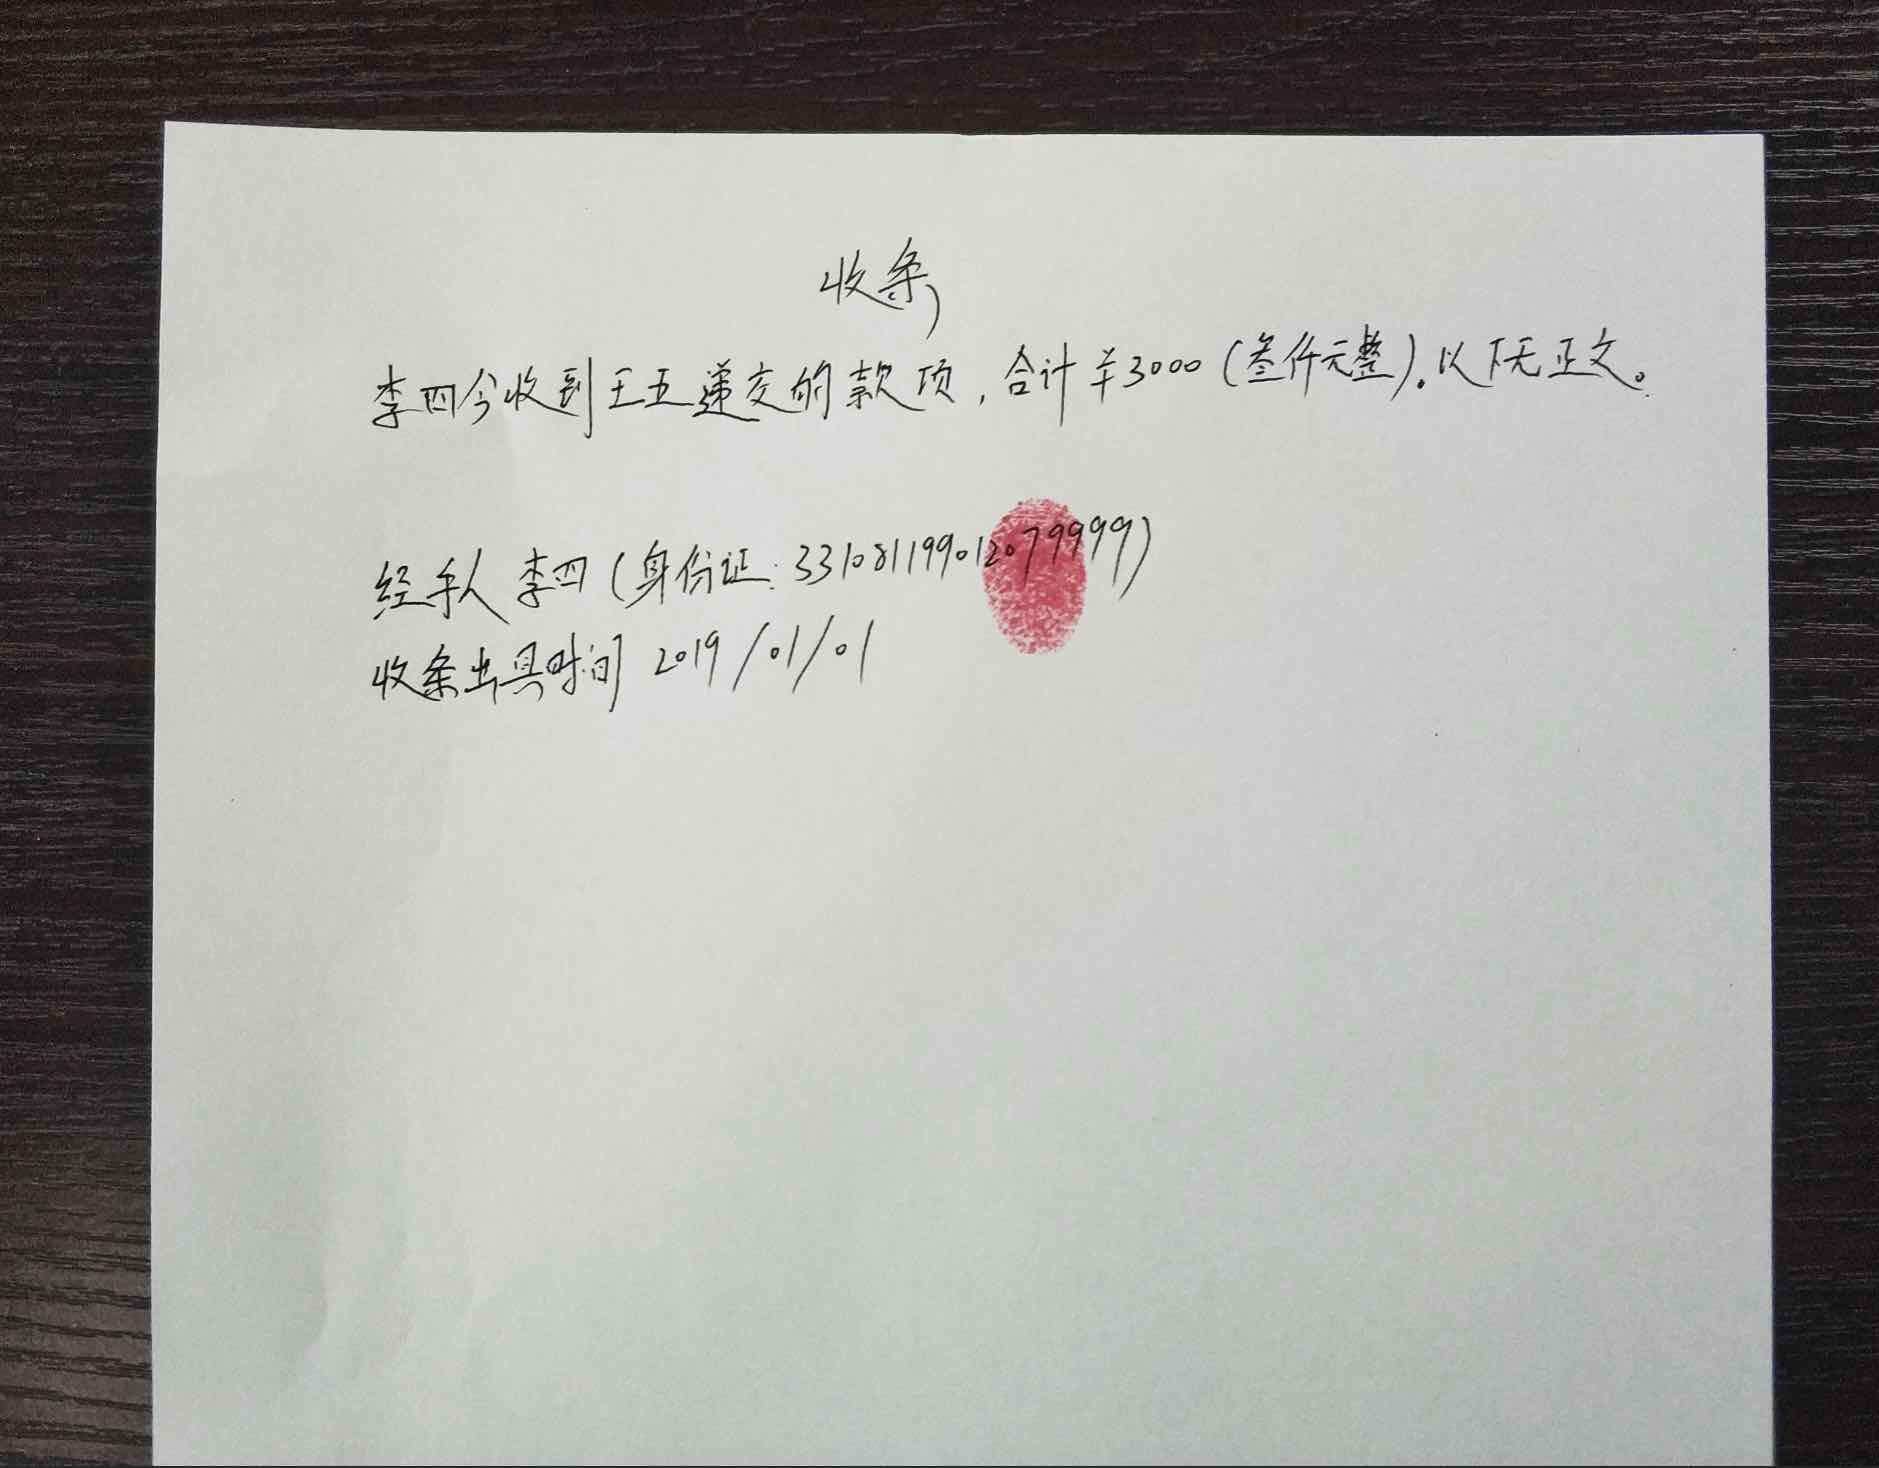 收条
李四今收到王五递交的款项，合计￥3000（叁仟元整）。以下无正文。
经手人 李四（身份证：331081199012079999）
收条出具时间 2019/01/01